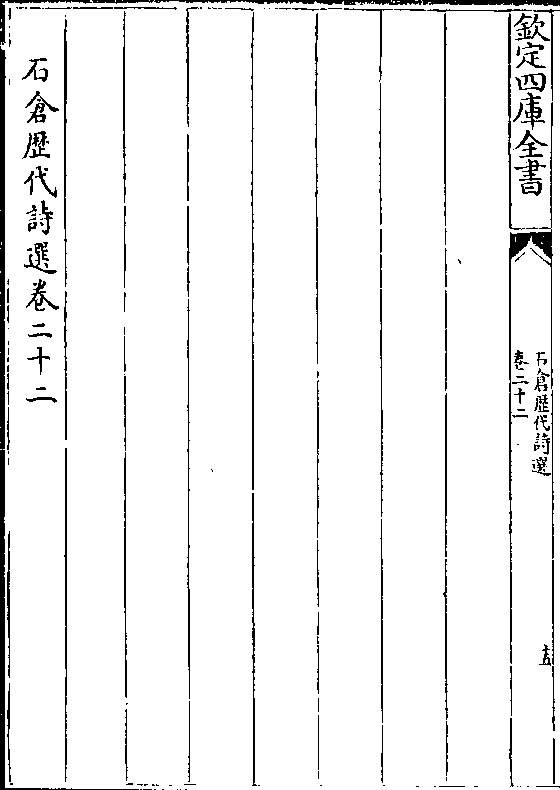 欽定四庫全書
石倉歴代詩選
卷二十二
石倉歴代詩選卷二十二